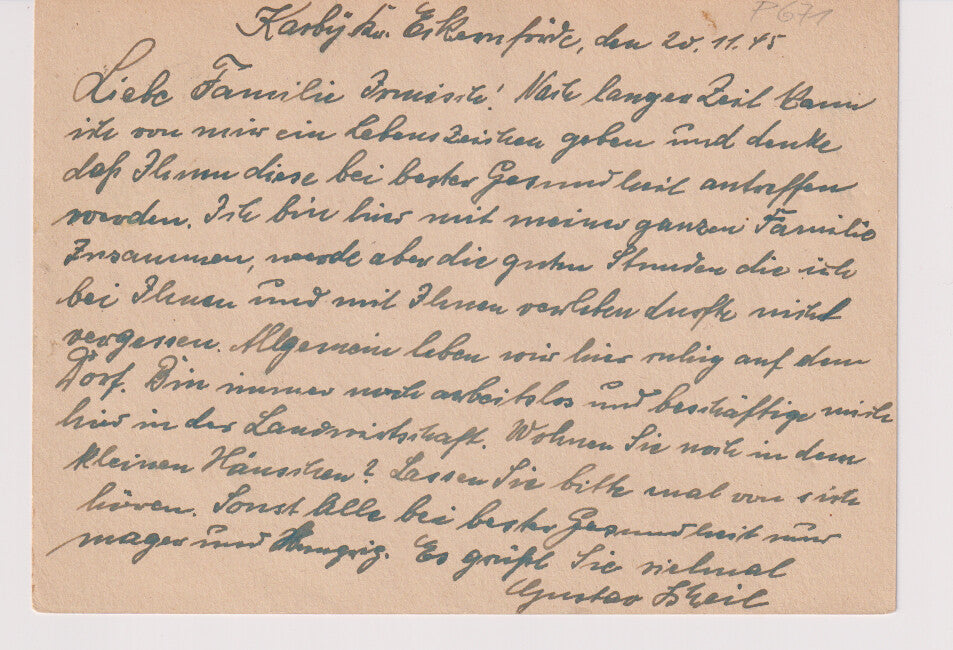 P671
Karby Kr. Eckernförde, den 20.11.45
Liebe Familie Irmisch! Nach langer Zeit kann
ich von mir ein Lebenszeichen geben und denke
daß Ihnen diese bei bester Gesundheit antreffen
werden. Ich bin hier mit meiner ganzen Familie
zusammen, werde aber die guten Stunden die ich
bei Ihnen und mit Ihnen verleben durfte nicht
vergessen. Allgemein leben wir hier ruhig auf dem
Dorf. Bin immer noch arbeitslos und beschäftige mich
hier in der Landwirtschaft. Wohnen Sie noch in dem
kleinen Häuschen? Lassen Sie bitte mal von sich
hören. Sonst Alle bei bester Gesundheit nur
mager und Hungrig. Es grüßt Sie vielmal
Gustav